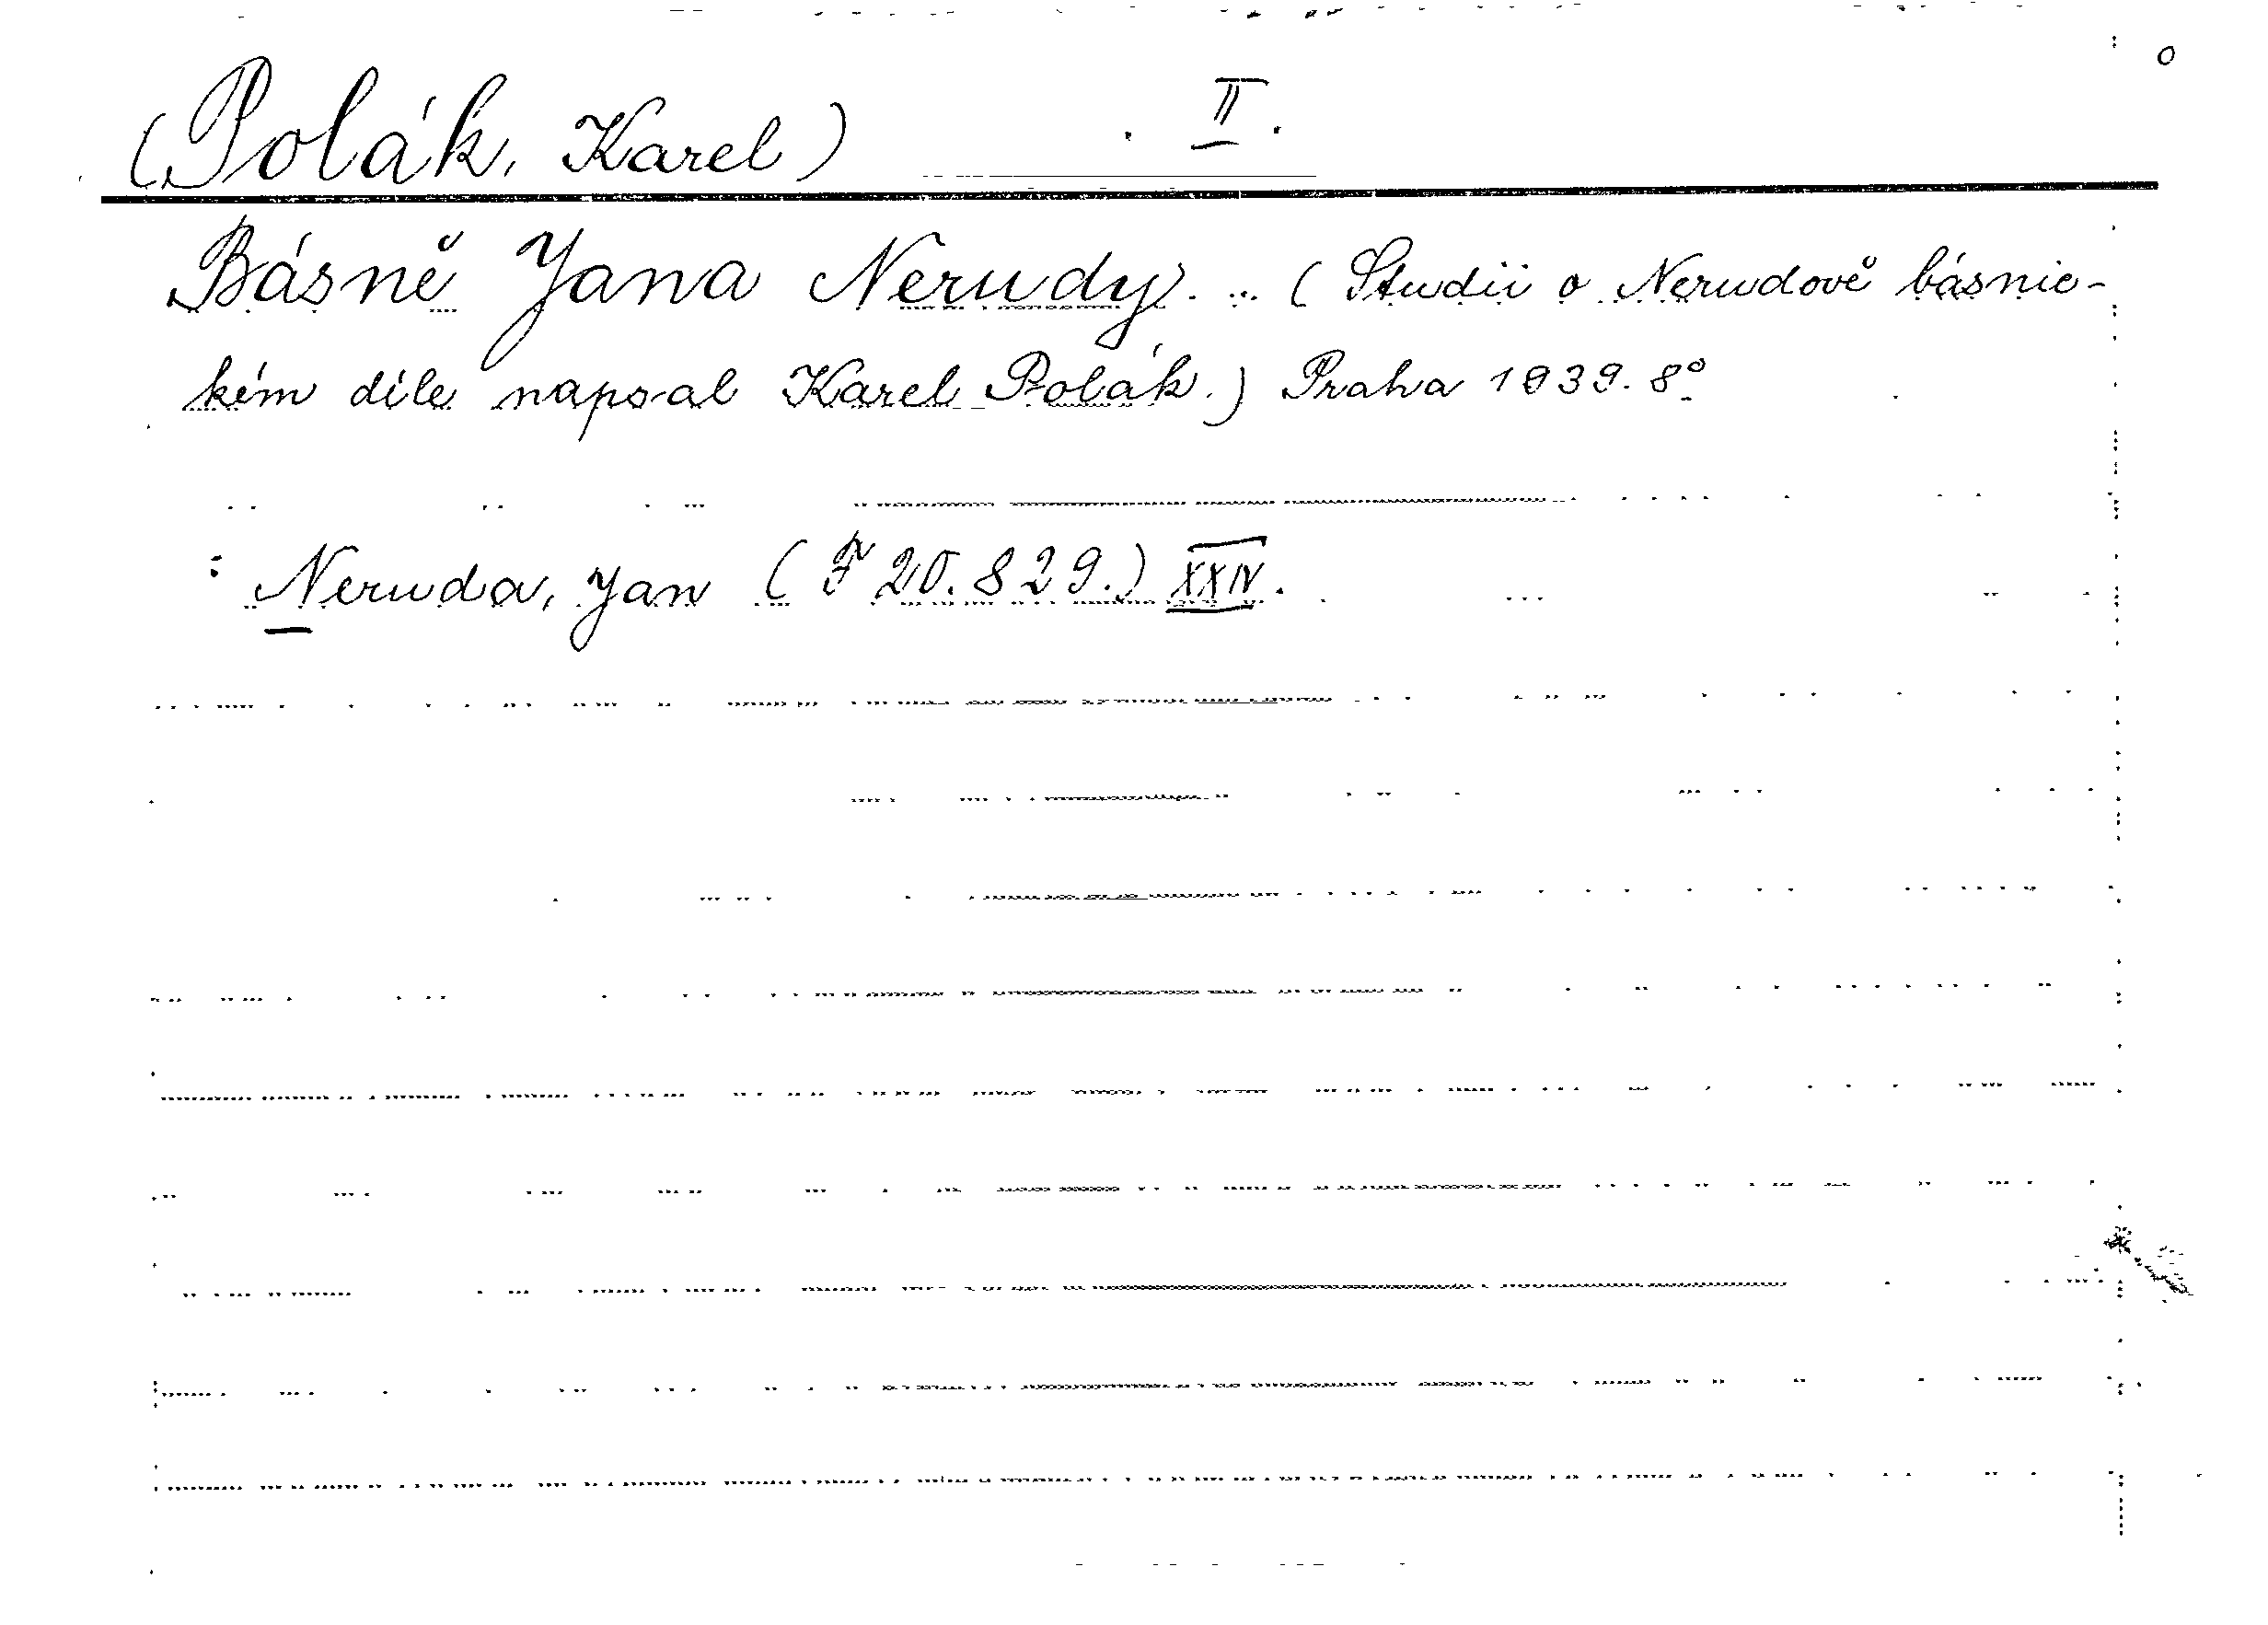 (Polák, Karel) II.
Básně Jana Nerudy. ... (Studii o Nerudově básnic-
kém díle napsal Karel Polák.) Praha 1939. 8°
: Neruda, Jan (F 20.829.) XXIV.